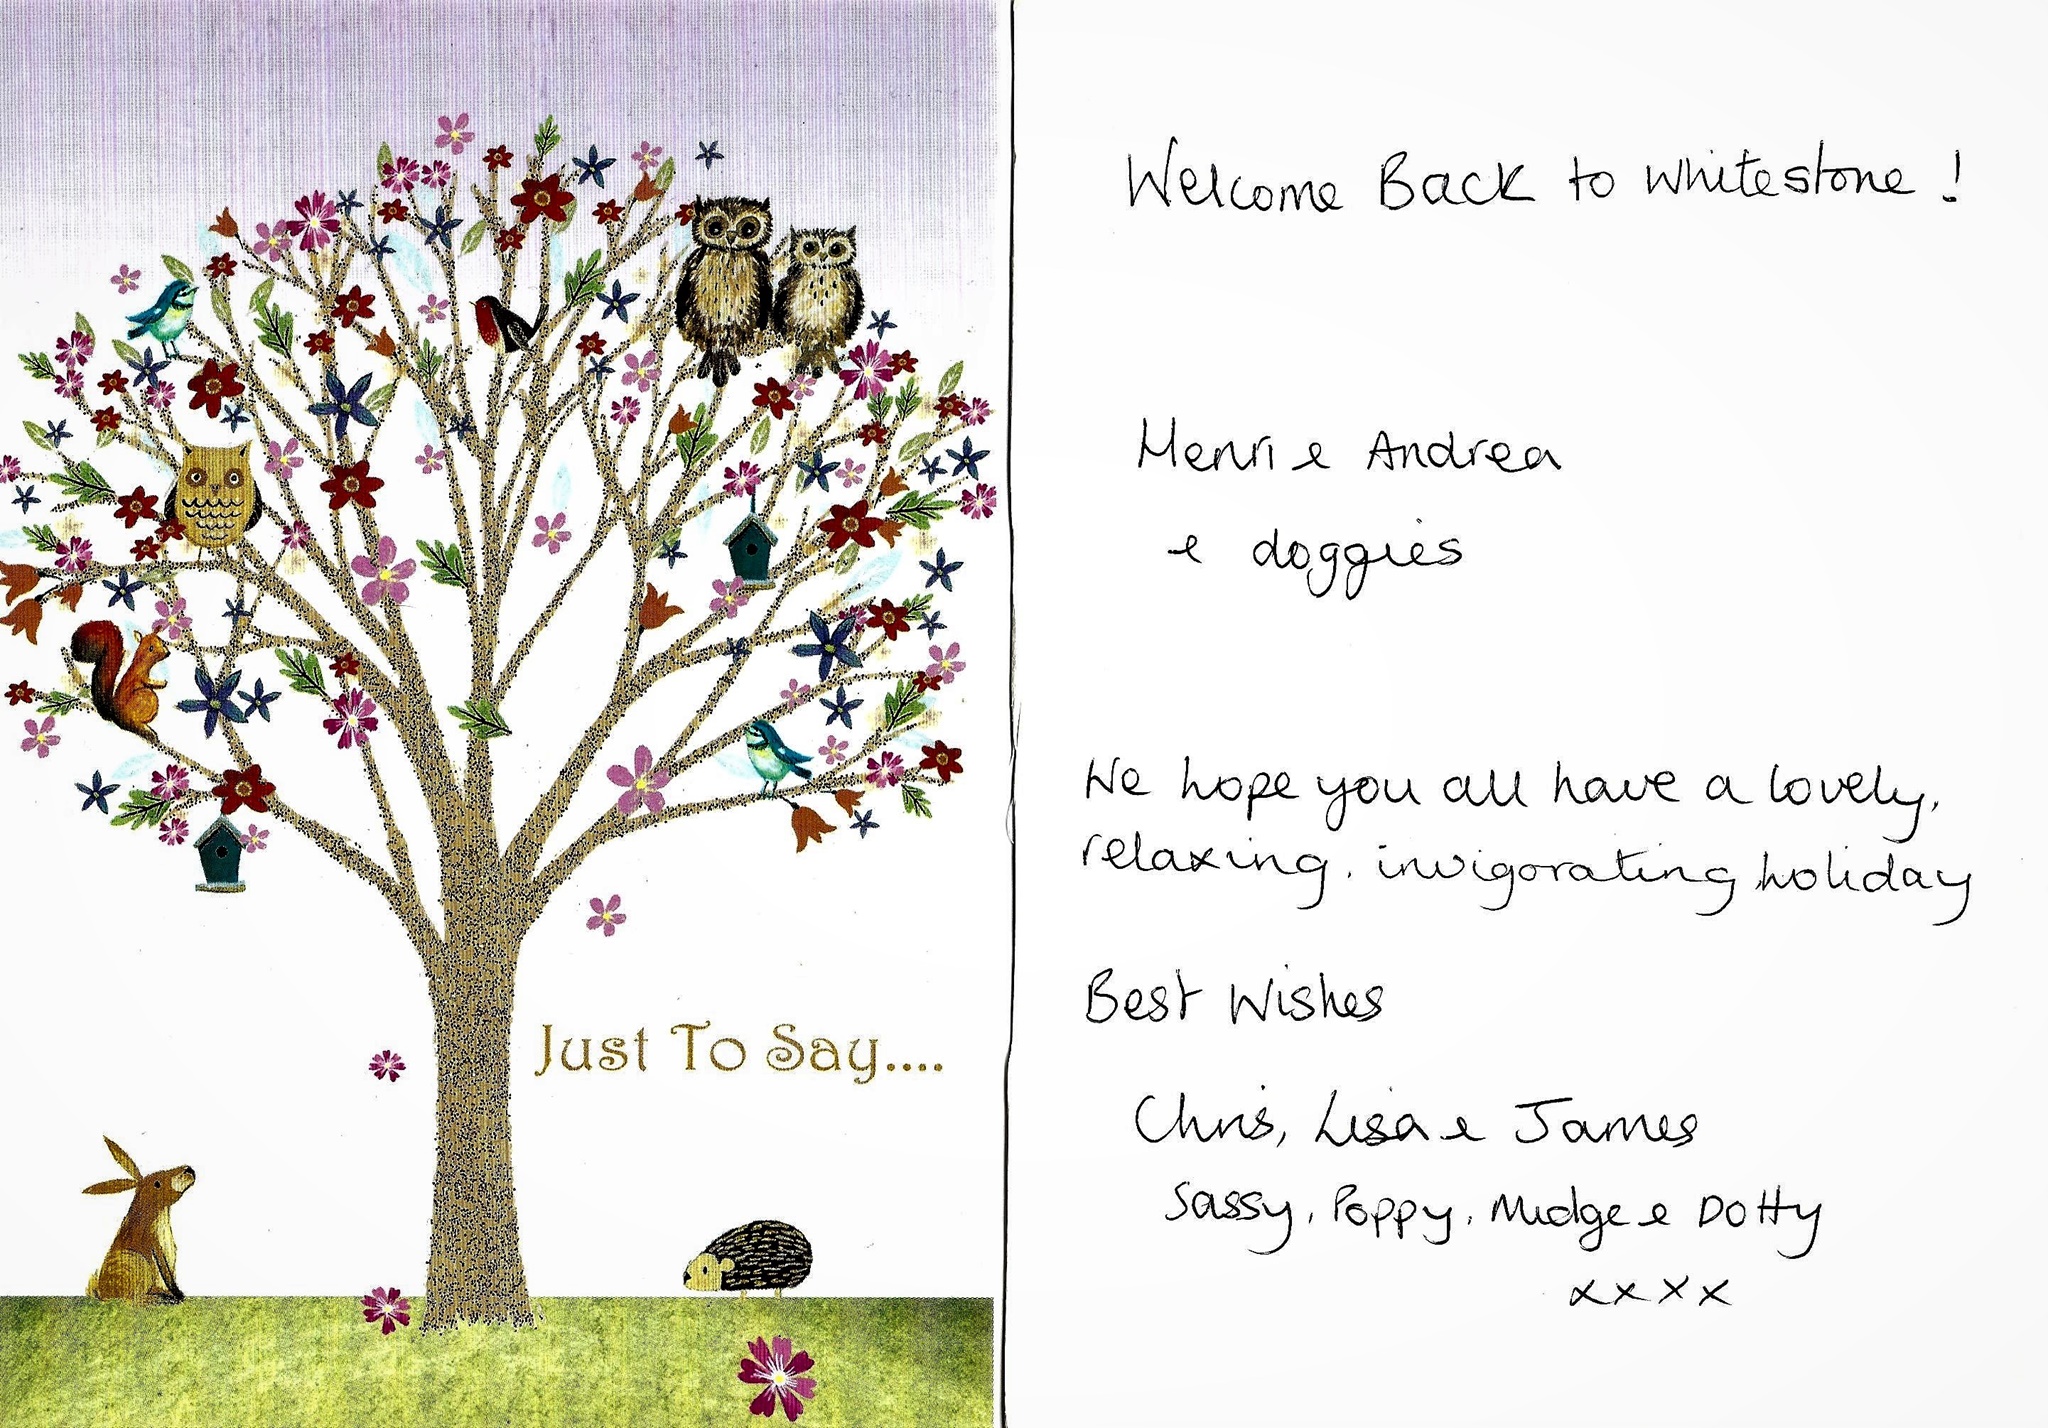 Just To Say....
Welcome Back to Whitestone !
Henri & Andrea
& doggies
We hope you all have a lovely,
relaxing, invigorating holiday
Best Wishes
Chris, Lisa & James
Sassy, Poppy, Midge & Dotty
xxxx